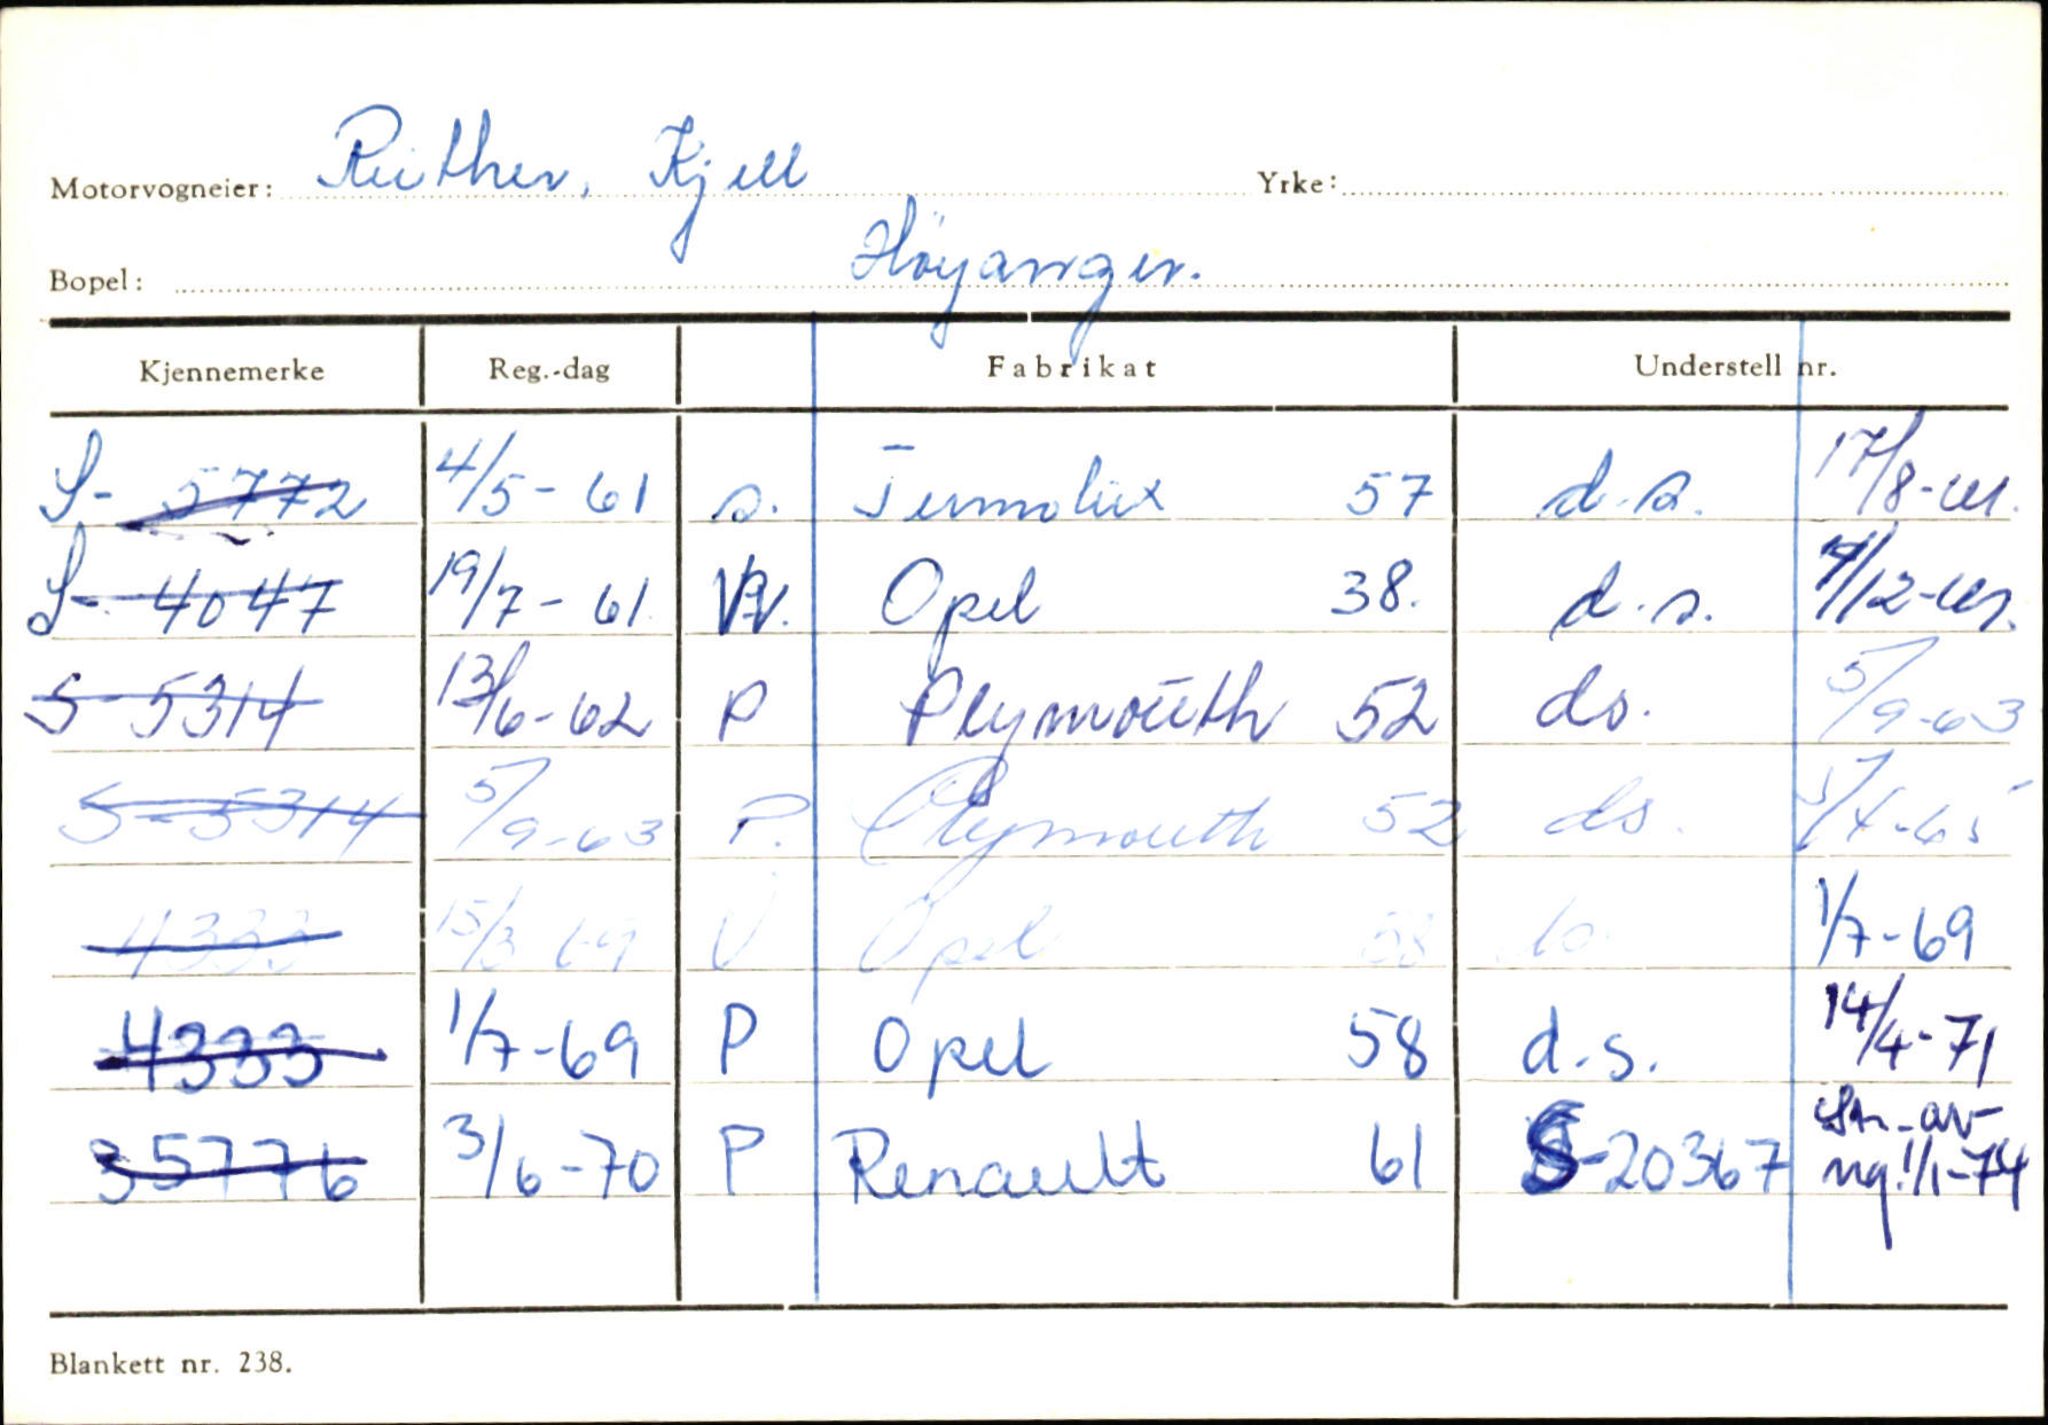 Motorvogneier: Reither, Kjell Yrke:
Bopel: Höyanger.
Kjennemerke Reg.-dag Fabrikat Understell nr.
S- 5772 4/5-61 s. Termolux 57 d.s. 17/8-61.
S- 4047 19/7-61. Opel 38. d.s. 4/12-61.
S-5314 13/6-62 P Plymouth 52 ds. 5/9-63
S-5314 5/9-63 P. Plymouth 52 ds. /4-65
4333 15/3 69 V Opel 58 ds
4333 1/7-69 P Opel 58 d.s. 14/4-71
1/7-69
35776 3/6-70 P Renault 61 S-20367 av-
ng. 1/1-74
Blankett nr. 238.